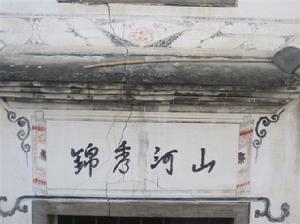 錦秀河山